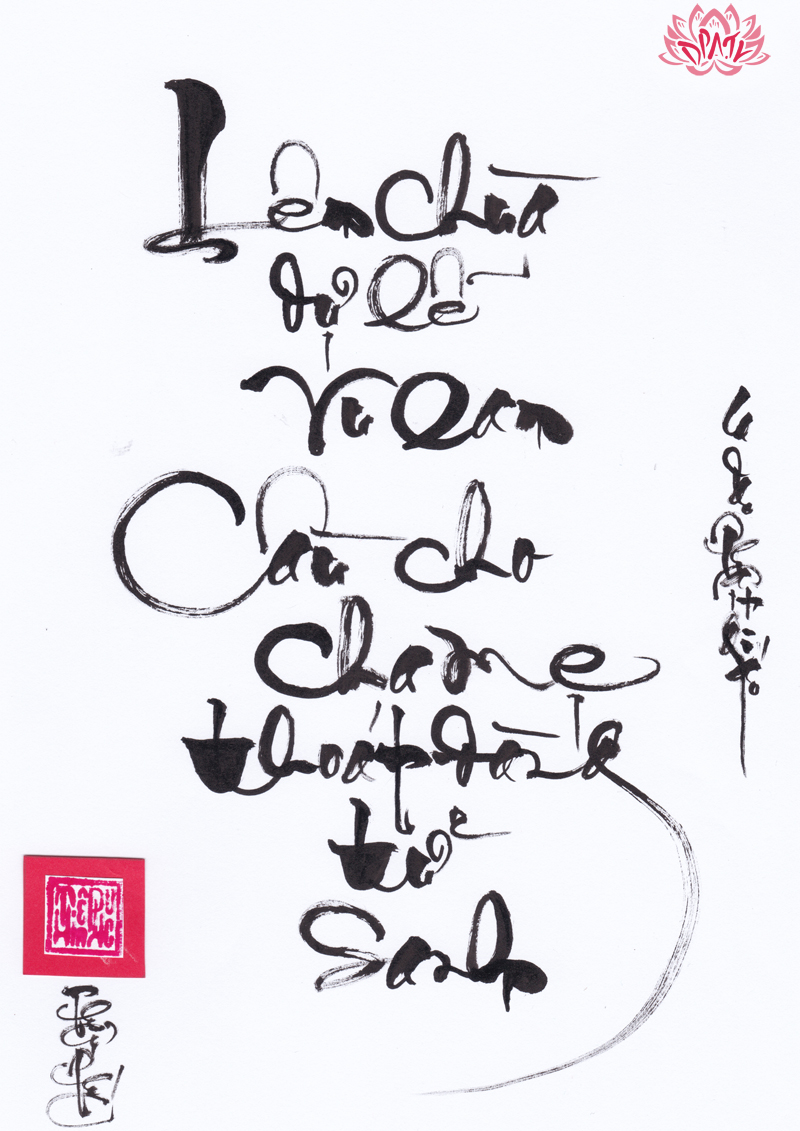 Lên chùa
dự Lễ
Vu Lan
Cầu cho
cha mẹ
thoát đàng
tử
Sanh
ĐPATK